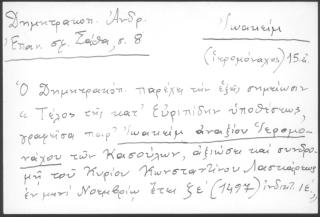 Δημητρακοπ. Ἀνδρ.
Ἐπαν. σμ. Σάθα, σ. 8
Ἰωακεὶμ
(ἱερομόναχος) 15 αἰ.
Ὁ Δημητρακόπ. παρέχει τὴν ἑξῆς σημείωσιν
« Τέλος τῆς κατ' Εὐριπίδην ὑποθέσεως,
γραφεῖσα παρ' Ἰωακεὶμ ἀναξίου Ἱερομο-
νάχου τῶν Κασούλων, ἀξιώσει καὶ συνδρο-
μῇ τοῦ Κυρίου Κωνσταντίνου Λασκάρεως
ἐν μηνὶ Νοεμβρίῳ, ἔτει ζεʹ (1497) ἰνδικτ. ιεʹ.»